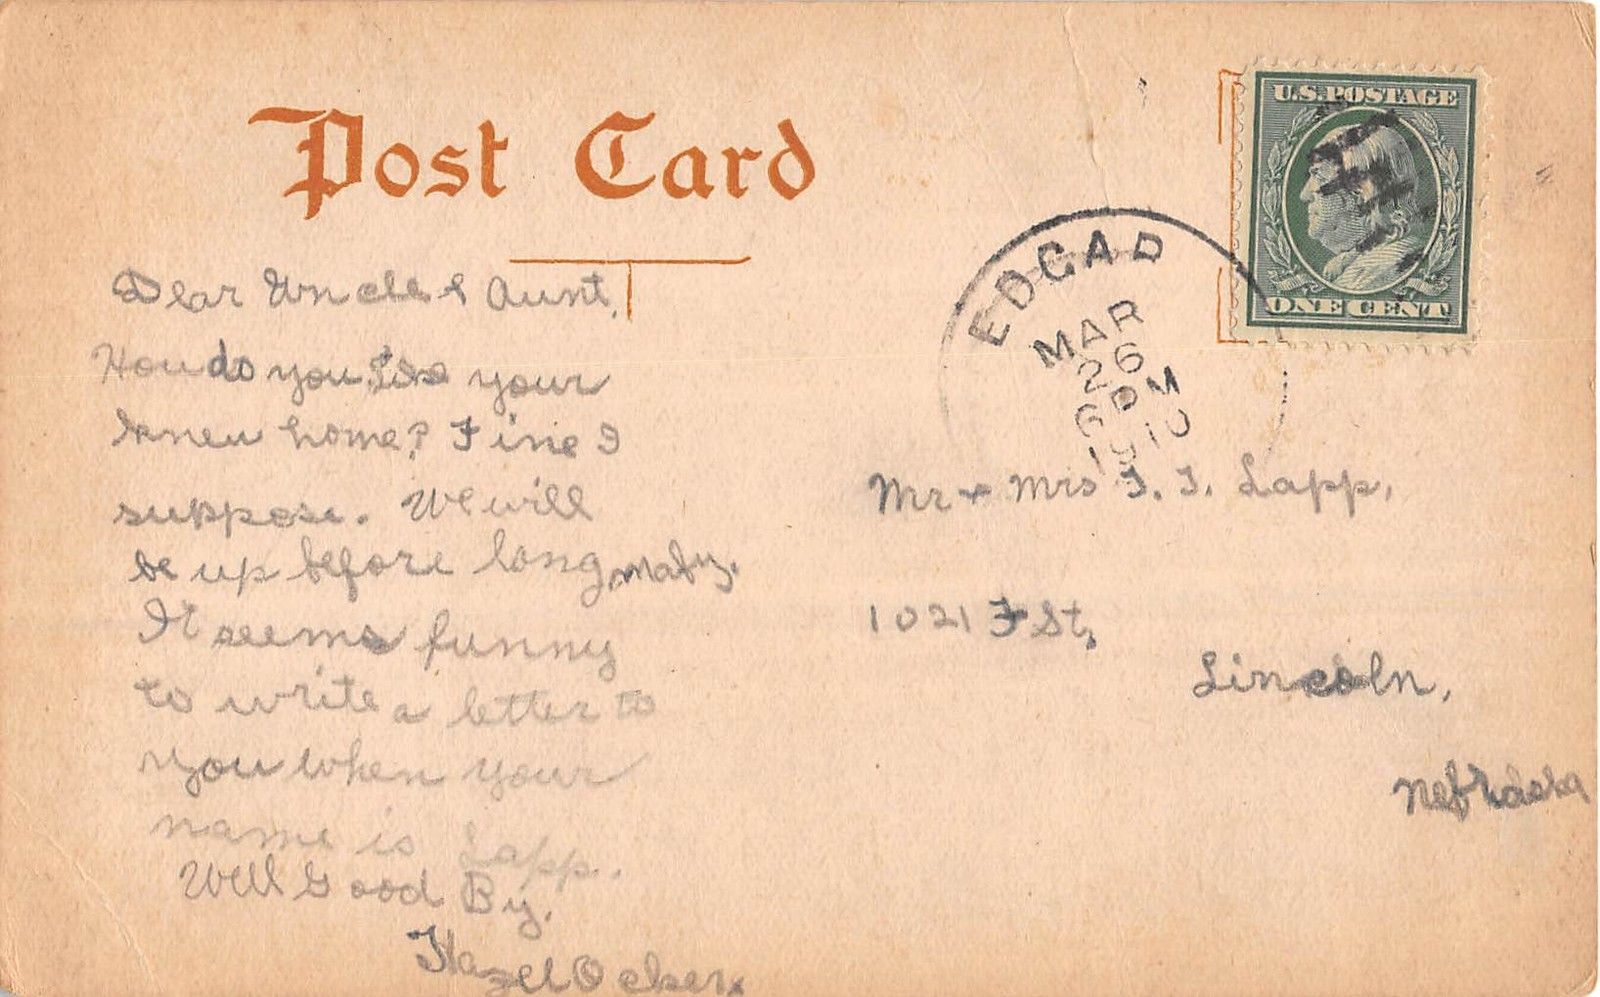 Post Card
U.S. POSTAGE
ONE CENT
EDGAR
MAR
26
6 PM
1910
Dear Uncle & Aunt,
How do you like your
knew home? Fine I
suppose. We will
be up before long, maby.
It seems funny
to write a letter to
you when your
name is Lapp.
Well Good By.
Hazel Ocker
Mr + Mrs J. J. Lapp,
1021 F St,
Lincoln,
Nebraska